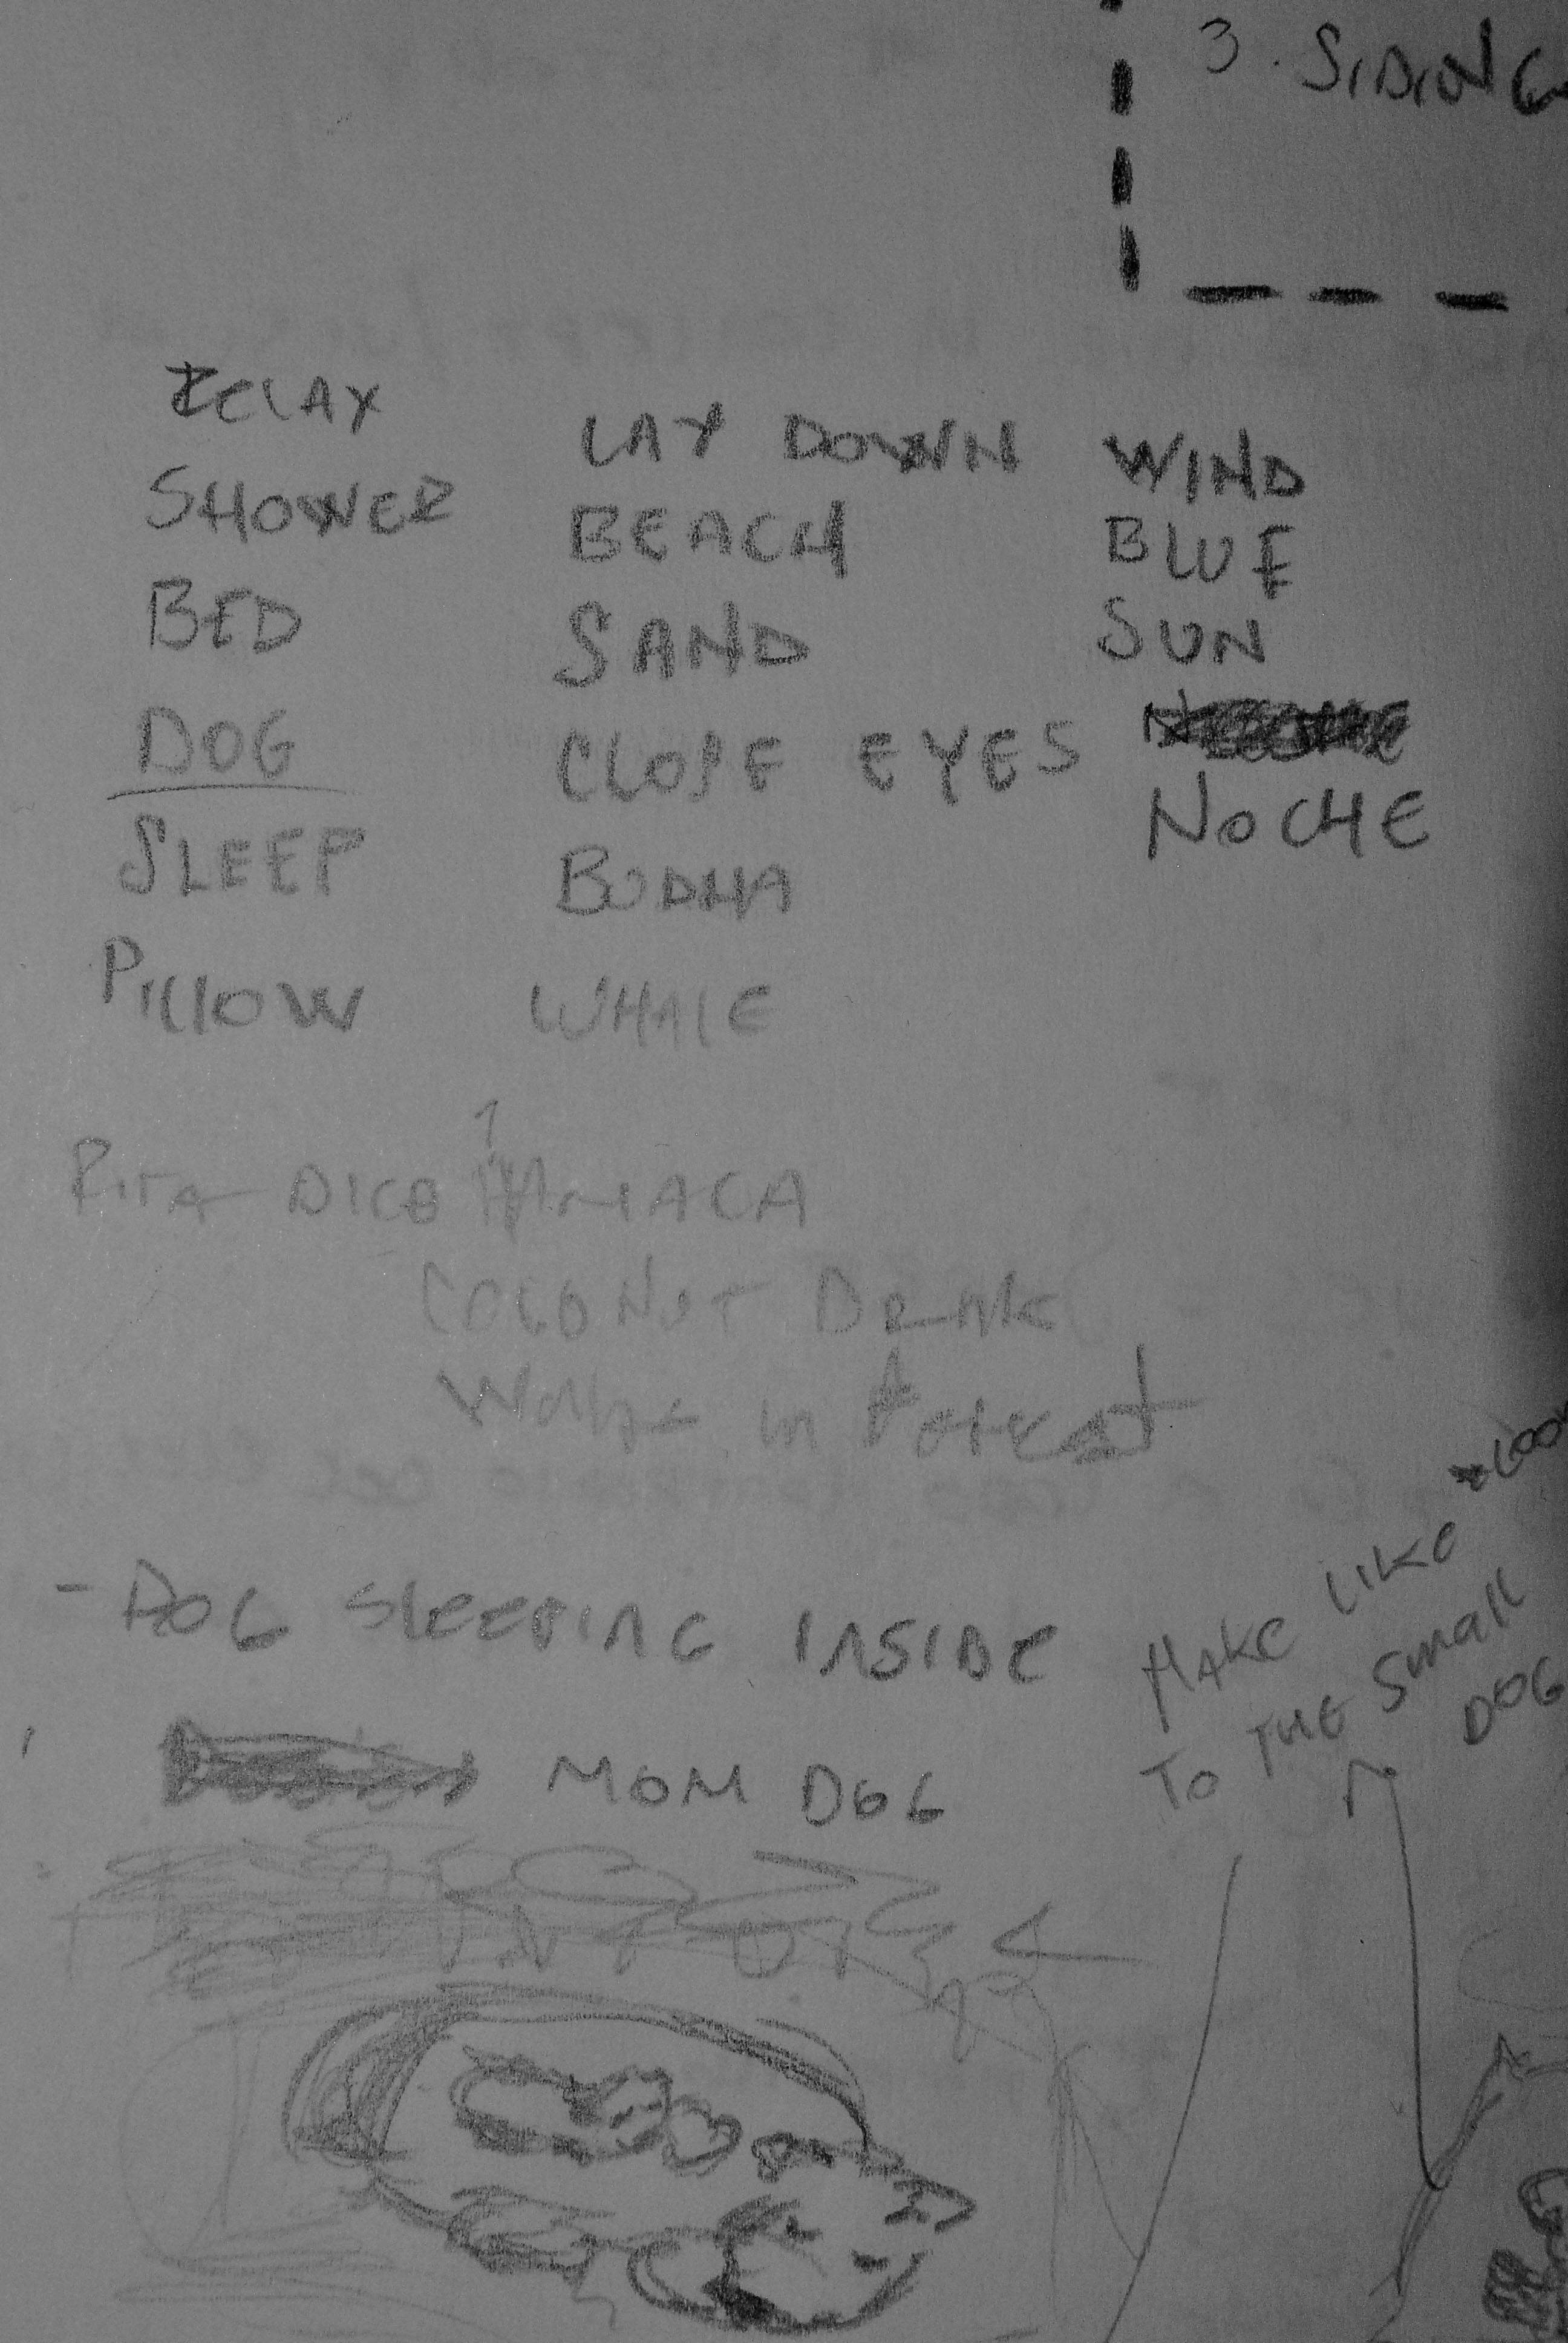 3. SIDING
RELAX
SHOWER
BED
DOG
SLEEP
PILLOW
LAY DOWN
BEACH
SAND
CLOSE EYES
BUDHA
WHALE
WIND
BLUE
SUN
NOCHE
RITA DICE HAMACA
COCONUT DRINK
Walk in forest
- DOG SLEEPING INSIDE
MOM DOG
MAKE LIKE
TO THE Small
DOG